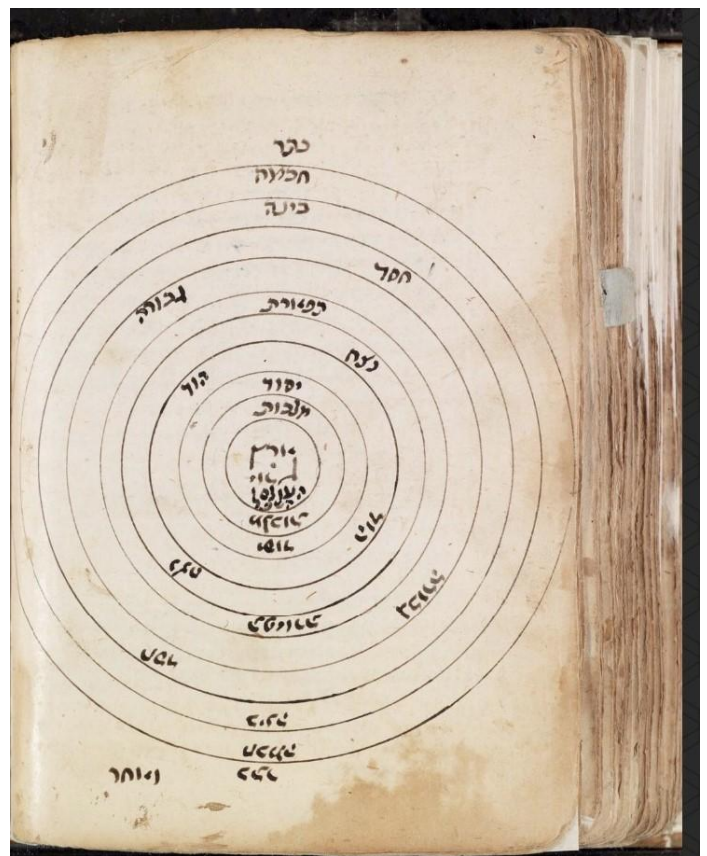 כתר
חכמה
בינה
חסד
גבורה
תפארת
נצח
הוד
יסוד
מלכות
ארץ
העולם
השפל
מלכות
יסוד
הוד
נצח
תפארת
גבורה
חסד
בינה
חכמה
כתר
ואוחר